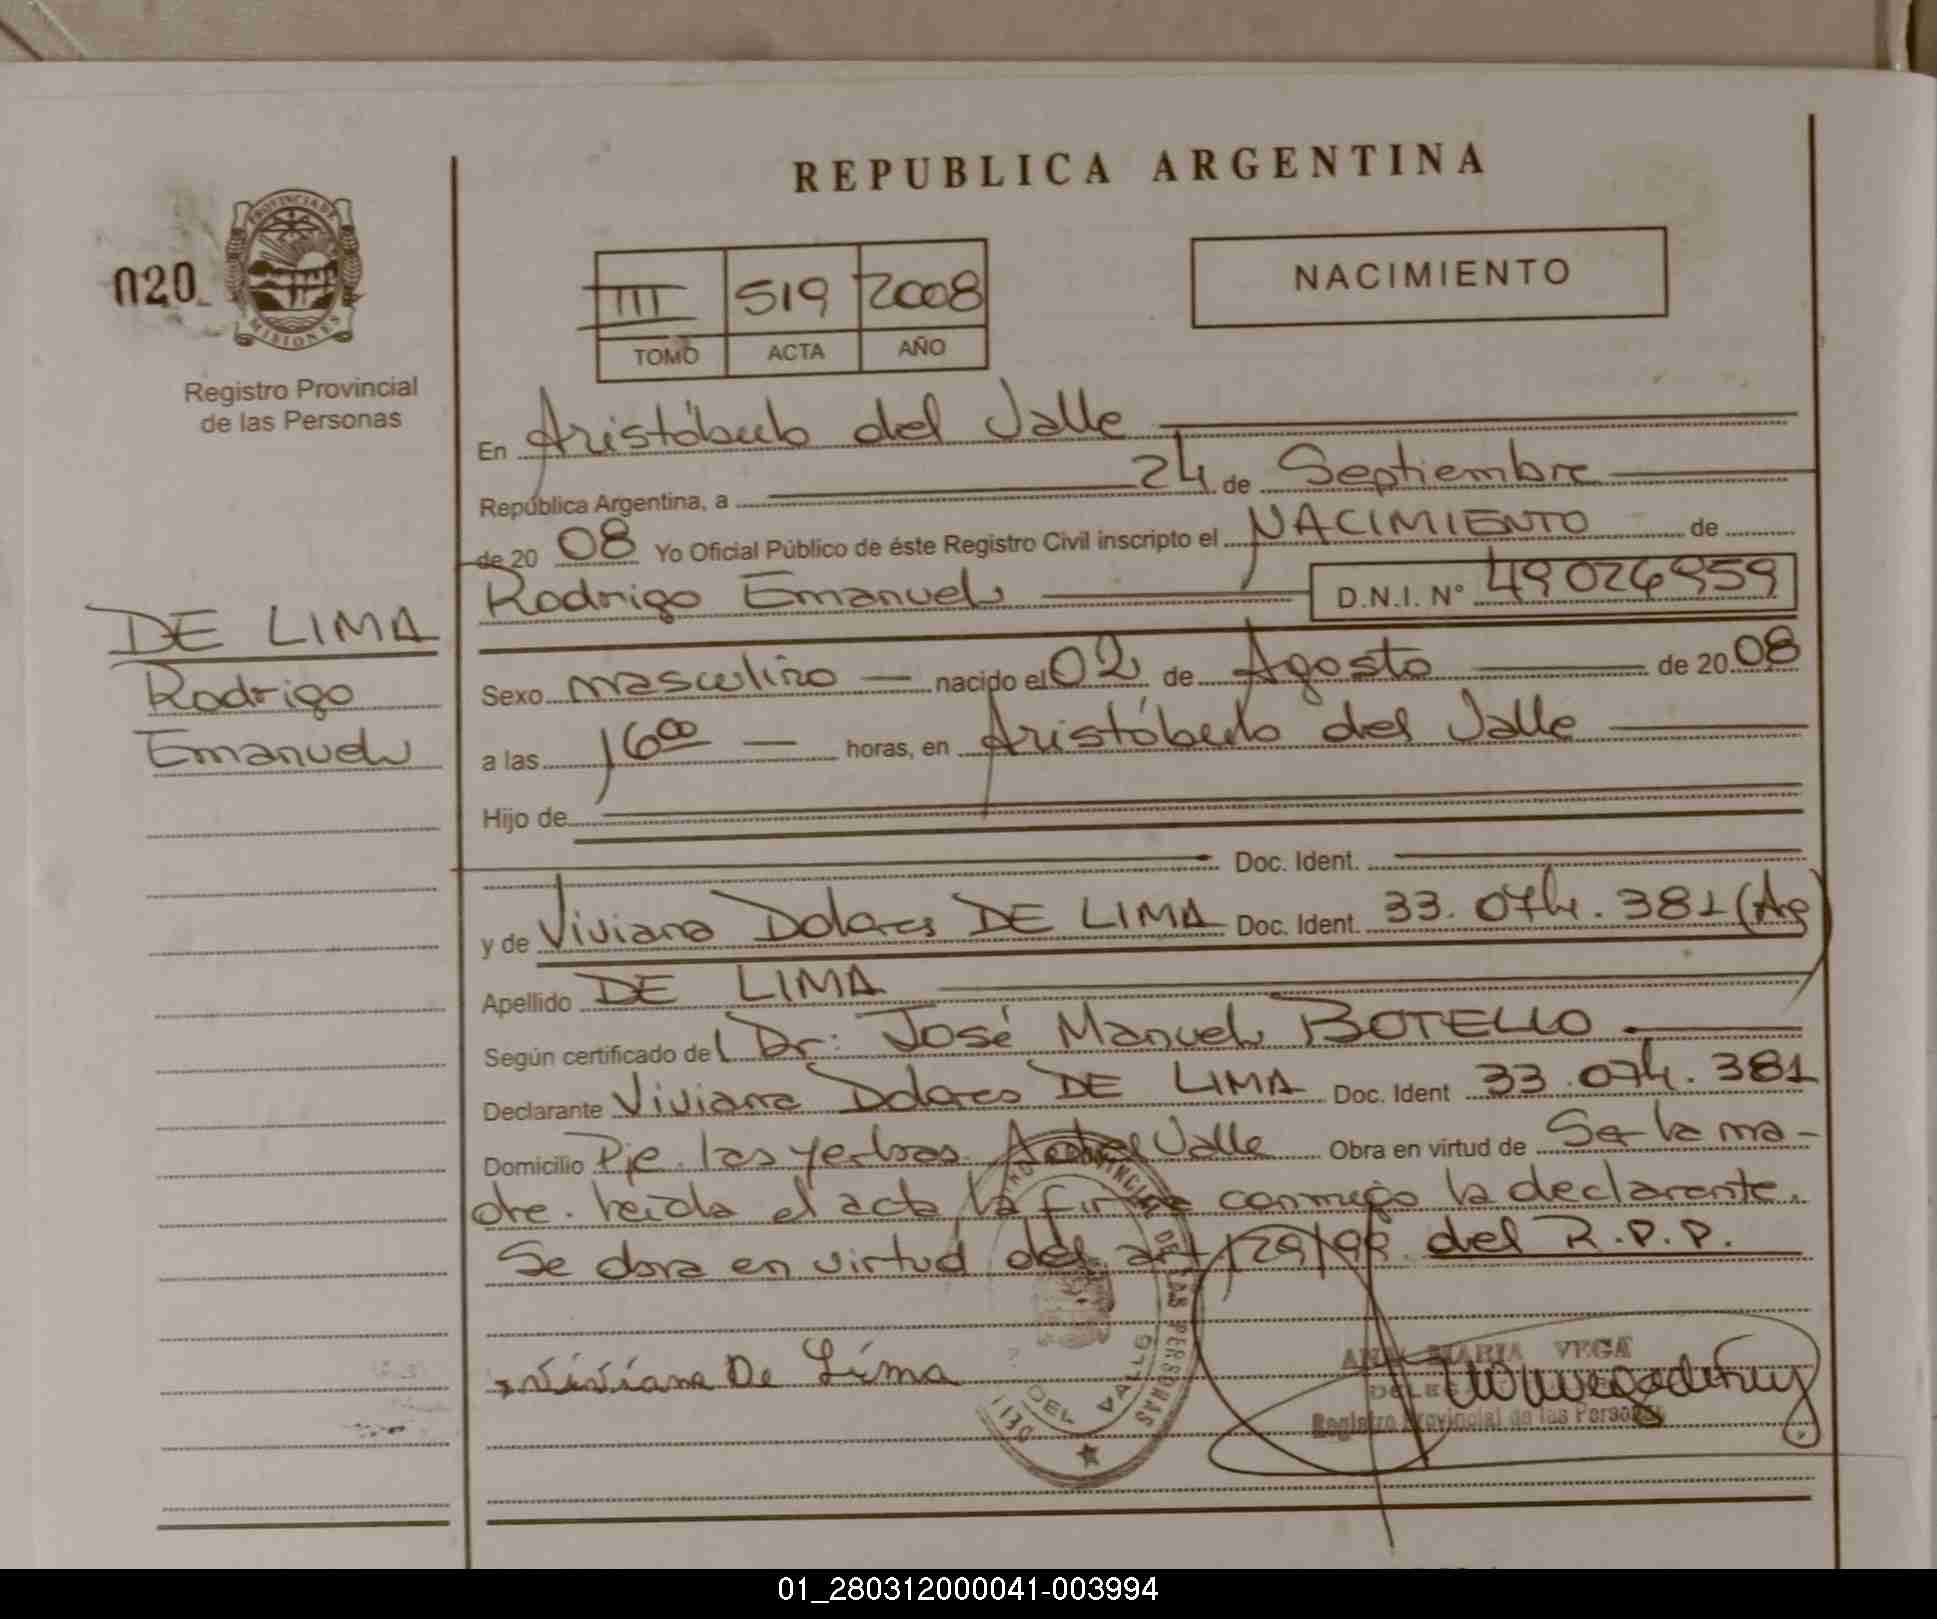 REPUBLICA ARGENTINA
020
PROVINCIA DE
MISIONES
Registro Provincial
de las Personas
III 519 2008
TOMO ACTA AÑO
NACIMIENTO
En Aristóbulo del Valle
República Argentina, a 24 de Septiembre
de 20 08 Yo Oficial Público de éste Registro Civil inscripto el NACIMIENTO de
Rodrigo Emanuel D.N.I. Nº 49026959
DE LIMA
Rodrigo
Emanuel
Sexo masculino nacido el 02 de Agosto de 20 08
a las 16 00 horas, en Aristóbulo del Valle
Hijo de
Doc. Ident.
y de Viviana Dolores DE LIMA Doc. Ident. 33.074.381 (Ag
Apellido DE LIMA
Según certificado del Dr: José Manuel BOTELLO
Declarante Viviana Dolores DE LIMA Doc. Ident 33.074.381
Domicilio Pje. las yerbas. Valle Obra en virtud de Ser la ma-
dre. leída el acta la firma conmigo la declarante.
Se obra en virtud del art 29/98 del R.P.P.
Viviana De Lima
DEL VALLE
1130
ANA MARIA VEGA
Registro Provincial de las Personas
01_280312000041-003994